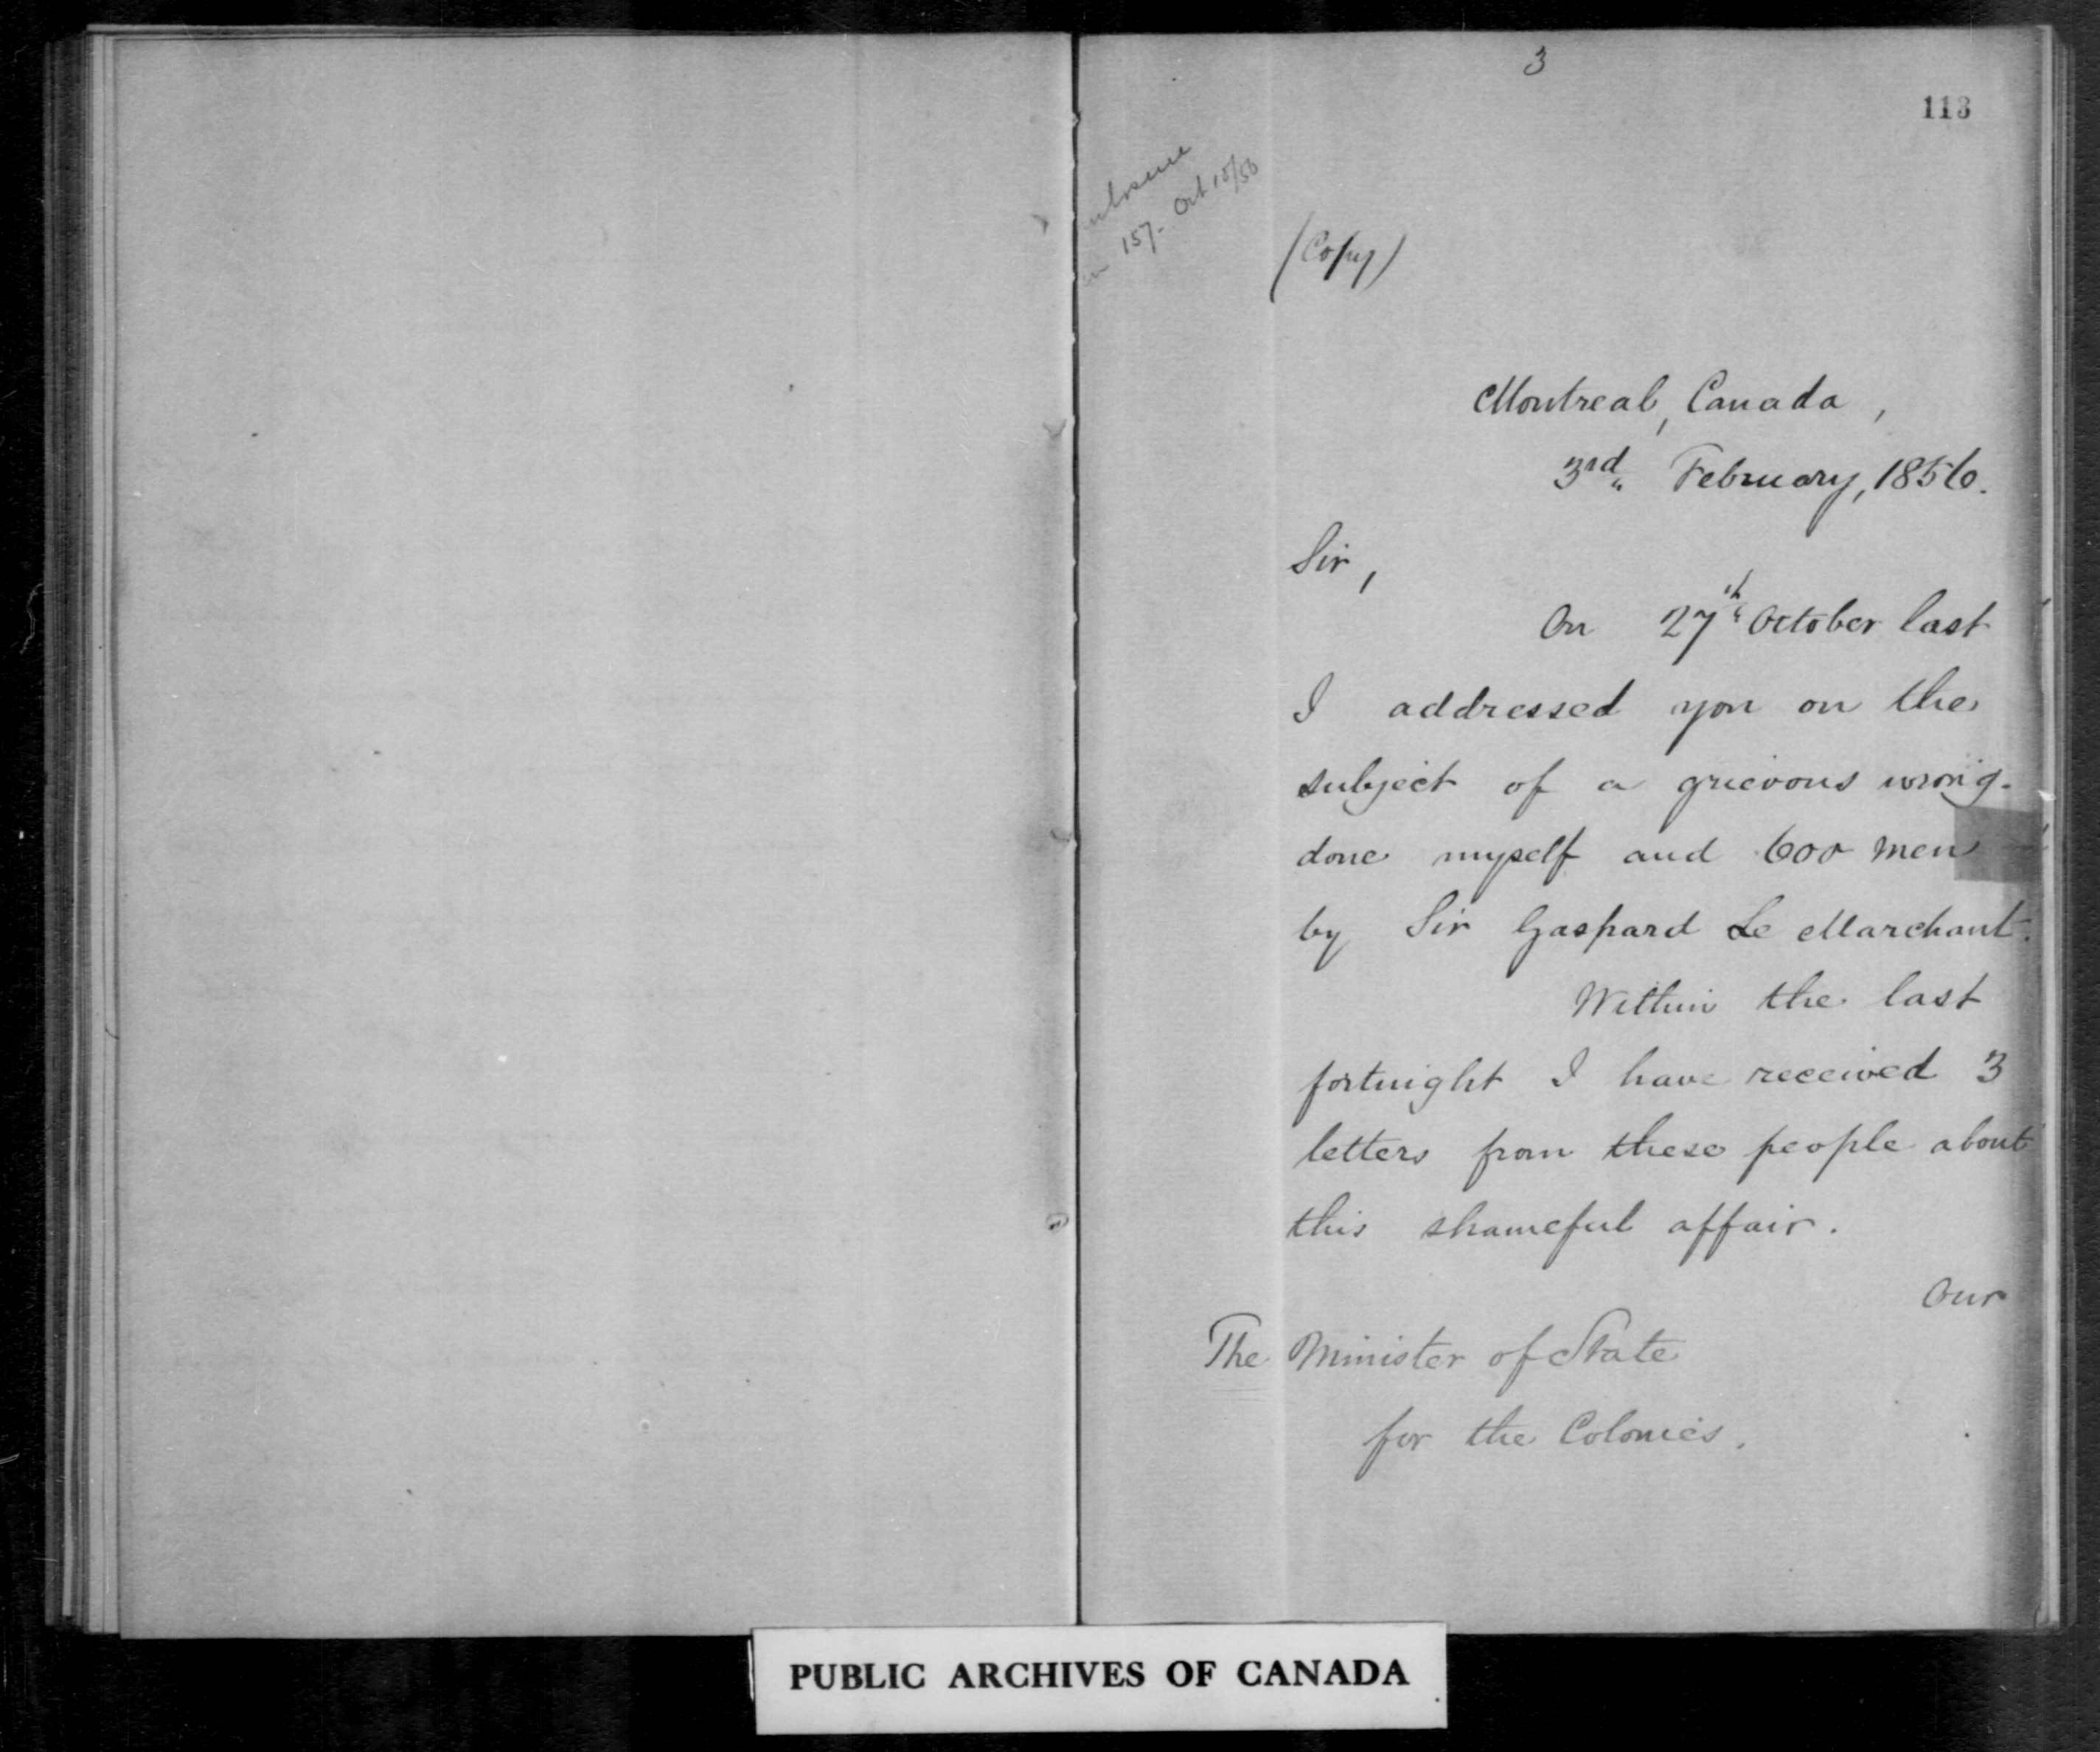 3
113
157- Oct 10/56
(Copy)
Montreal, Canada,
3rd February, 1856.
Sir,
On 27th October last
I addressed you on the
subject of a grievous wrong
done myself and 600 men
by Sir Gaspard Le Marchant.
Within the last
fortnight I have received 3
letters from these people about
this shameful affair.
Our
The Minister of State
for the Colonies.
PUBLIC ARCHIVES OF CANADA